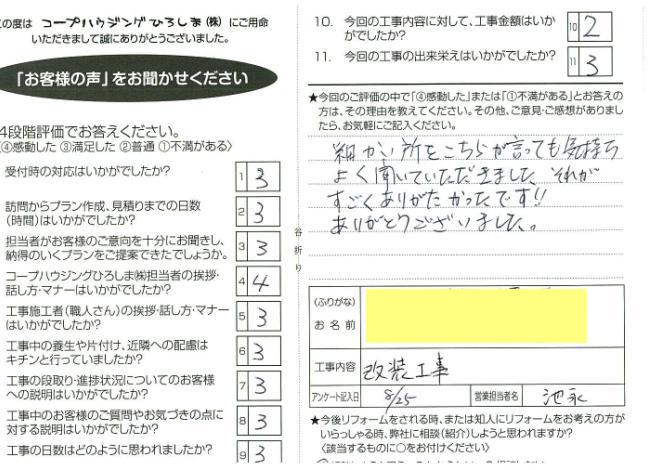 の度は コープハウジングひろしま(株) にご用命
いただきまして誠にありがとうございました。
「お客様の声」をお聞かせください
4段階評価でお答えください。
④感動した ③満足した ②普通 ①不満がある〉
受付時の対応はいかがでしたか?
1 3
訪問からプラン作成、見積りまでの日数
(時間)はいかがでしたか?
2 3
担当者がお客様のご意向を十分にお聞きし、
納得のいくプランをご提案できたでしょうか。
3 3
コープハウジングひろしま㈱担当者の挨拶・
話し方・マナーはいかがでしたか?
4 4
工事施工者(職人さん)の挨拶・話し方・マナー
はいかがでしたか?
5 3
工事中の養生や片付け、近隣への配慮は
キチンと行っていましたか?
6 3
工事の段取り・進捗状況についてのお客様
への説明はいかがでしたか?
7 3
工事中のお客様のご質問やお気づきの点に
対する説明はいかがでしたか?
8 3
工事の日数はどのように思われましたか?
9 3
谷折り
10. 今回の工事内容に対して、工事金額はいか
がでしたか?
10 2
11. 今回の工事の出来栄えはいかがでしたか?
11 3
★今回のご評価の中で「④感動した」または「①不満がある」とお答えの
方は、その理由を教えてください。その他、ご意見・ご感想がありまし
たら、お気軽にご記入ください。
細かい所をこちらが言っても気持ち
よく聞いていただきました それが
すごくありがたかったです!!
ありがとうございました。
(ふりがな)
お名前
工事内容 改装工事
アンケート記入日 8/25 営業担当者名 池永
★今後リフォームをされる時、または知人にリフォームをお考えの方が
いらっしゃる時、弊社に相談(紹介)しようと思われますか?
〈該当するものに○をお付けください〉